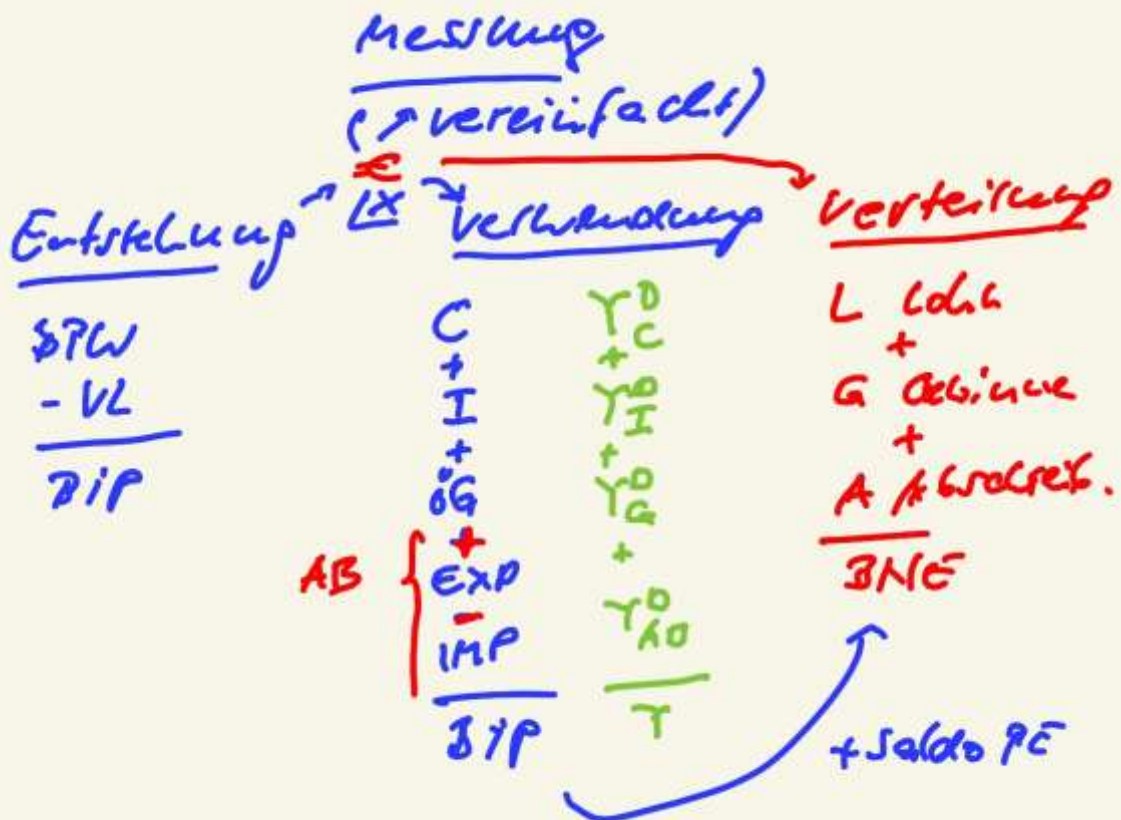 Messung
(↗ vereinfacht)
€
1x
Entstehung
BPW
- VL
BIP
Verwendung
C
+
I
+
öG
+
EXP
-
IMP
BIP
AB {
Y^D_C
+
Y^D_I
+
Y^D_G
+
Y^D_AB
Y
Verteilung
L Lohn
+
G Gewinne
+
A Abschreib.
BNE
+ Saldo PE